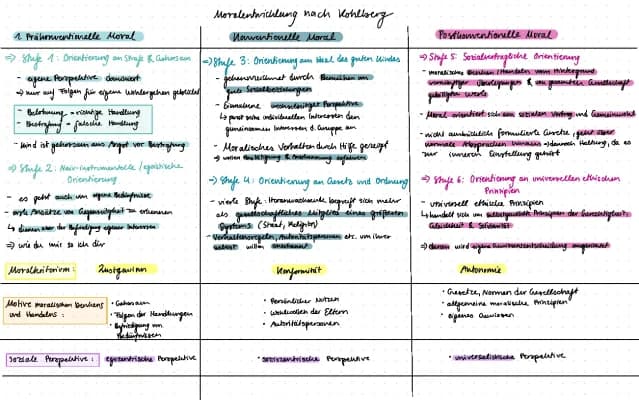 Moralentwicklung nach Kohlberg
1. Präkonventionelle Moral
⇒ Stufe 1: Orientierung an Strafe & Gehorsam
- eigene Perspektive dominiert
→ nur auf Folgen für eigene Wohlergehen
- Belohnung = richtige Handlung
- Bestrafung = falsche Handlung
- Kind ist gehorsam aus Angst vor Bestrafung
⇒ Stufe 2: Naiv-instrumentelle / egoistische
Orientierung
- es geht auch um eigene Bedürfnisse
- erste Ansätze von Gegenseitigkeit erkennen
↳ dienen aber der Befriedigung eigener Interessen
⇒ wie du mir so ich dir
Konventionelle Moral
⇒ Stufe 3: Orientierung am Ideal des guten Kindes
- gekennzeichnet durch Bemühen um
gute Sozialbeziehungen
- Einnahme wechselseitiger Perspektive
↳ passt sich individuellen Interessen dem
gemeinsamen Interesse d. Gruppe an
- Moralisches Verhalten durch Hilfe gezeigt
→ wollen & Anerkennung erfahren
⇒ Stufe 4: Orientierung an Gesetz und Ordnung
- vierte Stufe: Heranwachsende begreift sich mehr
als gesellschaftliches Mitglied eines größeren
Systems (Staat, Religion)
- Verhaltensregeln, Autoritätspersonen etc. um ihrer
selbst willen anerkannt
Postkonventionelle Moral
⇒ Stufe 5: Sozialvertragliche Orientierung
- moralisches Denken/Handeln vorm Hintergrund
vernünftiger Überlegungen & von gesamten Gesellschaft
gebilligten Werte
- Moral orientiert sich am sozialen Vertrag und Gemeinwohl
- nicht ausdrücklich formulierte Gesetze, geht über
normale Absprachen hinaus ⇒ danach Haltung, da es
zur inneren Einstellung gehört
⇒ Stufe 6: Orientierung an universellen ethischen
Prinzipien
- universell ethische Prinzipien
↳ handelt sich um selbstgewählte Prinzipien der Gerechtigkeit,
Gleichheit & Solidarität
⇒ daran wird eigene Gewissensentscheidung ausgerichtet
Moralkriterium: Lustgewinn
Konformität
Autonomie
Motive moralischen Denkens
und Handelns:
• Gehorsam
• Folgen der Handlungen
• Befriedigung von
Bedürfnissen
• Persönlicher Nutzen
• Wohlwollen der Eltern
• Autoritätspersonen
• Gesetze, Normen der Gesellschaft
• allgemeine moralische Prinzipien
• eigenes Gewissen
Soziale Perspektive: egozentrische Perspektive
• soziozentrische Perspektive
• universalistische Perspektive